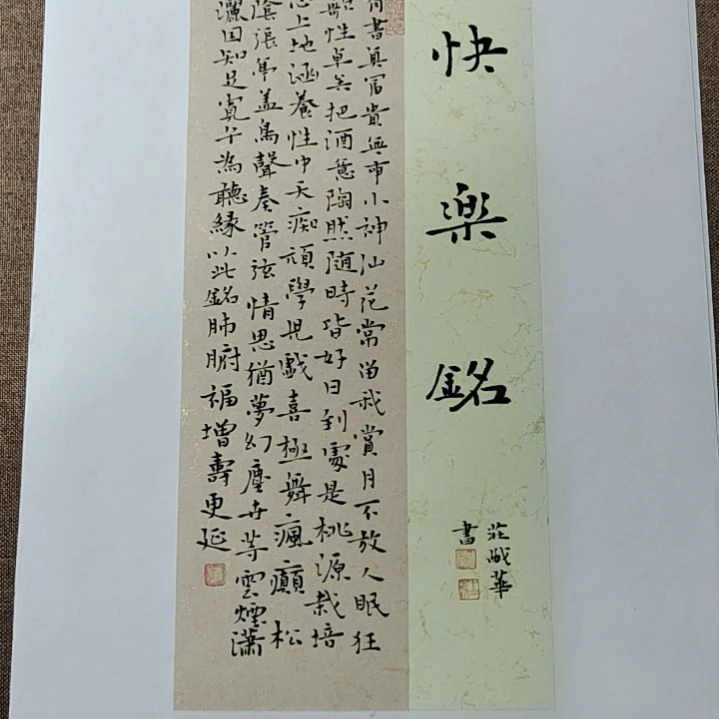 快
楽
銘
書
書真富貴無市小神仙花常留我賞月不放人眠狂
性把酒意陶然隨時皆好日到處是桃源栽培
心上地涵養性中天痴頑學兒戲喜極舞瘋癲松
陰張亭蓋鳥聲奏管弦情思猶夢幻塵世等雲煙瀟
灑因知足寬平為聽緣以此銘肺腑福增壽更延